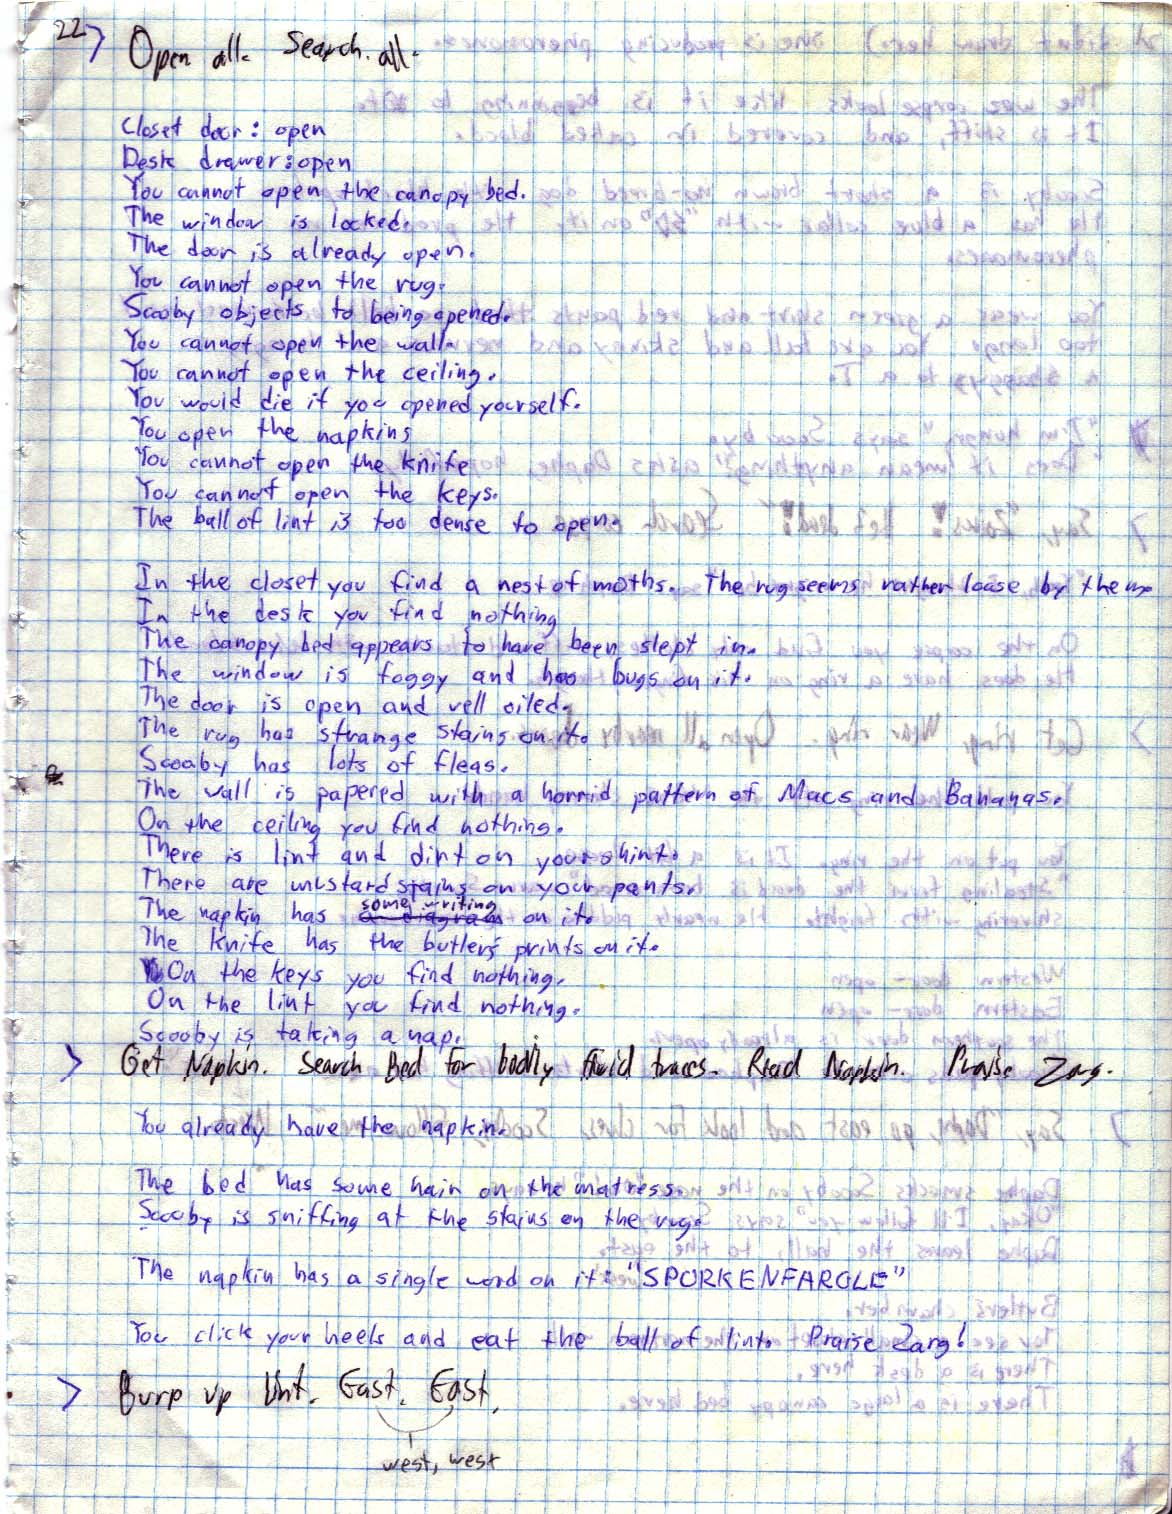 22> Open all. Search. all.
Closet door: open
Desk drawer: open
You cannot open the canopy bed.
The window is locked.
The door is already open.
You cannot open the rug.
Scooby objects to being opened.
You cannot open the wall.
You cannot open the ceiling.
You would die if you opened yourself.
You open the napkins
You cannot open the knife
You cannot open the keys.
The ball of lint is too dense to open.
In the closet you find a nest of moths. The rug seems rather loose by them
In the desk you find nothing
The canopy bed appears to have been slept in.
The window is foggy and has bugs on it.
The door is open and well oiled.
The rug has strange stains on it.
Scooby has lots of fleas.
The wall is papered with a horrid pattern of Macs and Bananas.
On the ceiling you find nothing.
There is lint and dirt on your shirt.
There are mustard stains on your pants.
The napkin has some writing on it.
The knife has the butler's prints on it.
On the keys you find nothing.
On the lint you find nothing.
Scooby is taking a nap.
> Get Napkin. Search Bed for bodily fluid traces. Read Napkin. Praise Zarg.
You already have the napkin.
The bed has some hair on the matress.
Scooby is sniffing at the stains on the rug.
The napkin has a single word on it: "SPORKENFARGLE"
You click your heels and eat the ball of lint. Praise Zarg!
> Burp up lint. East. East.
west, west